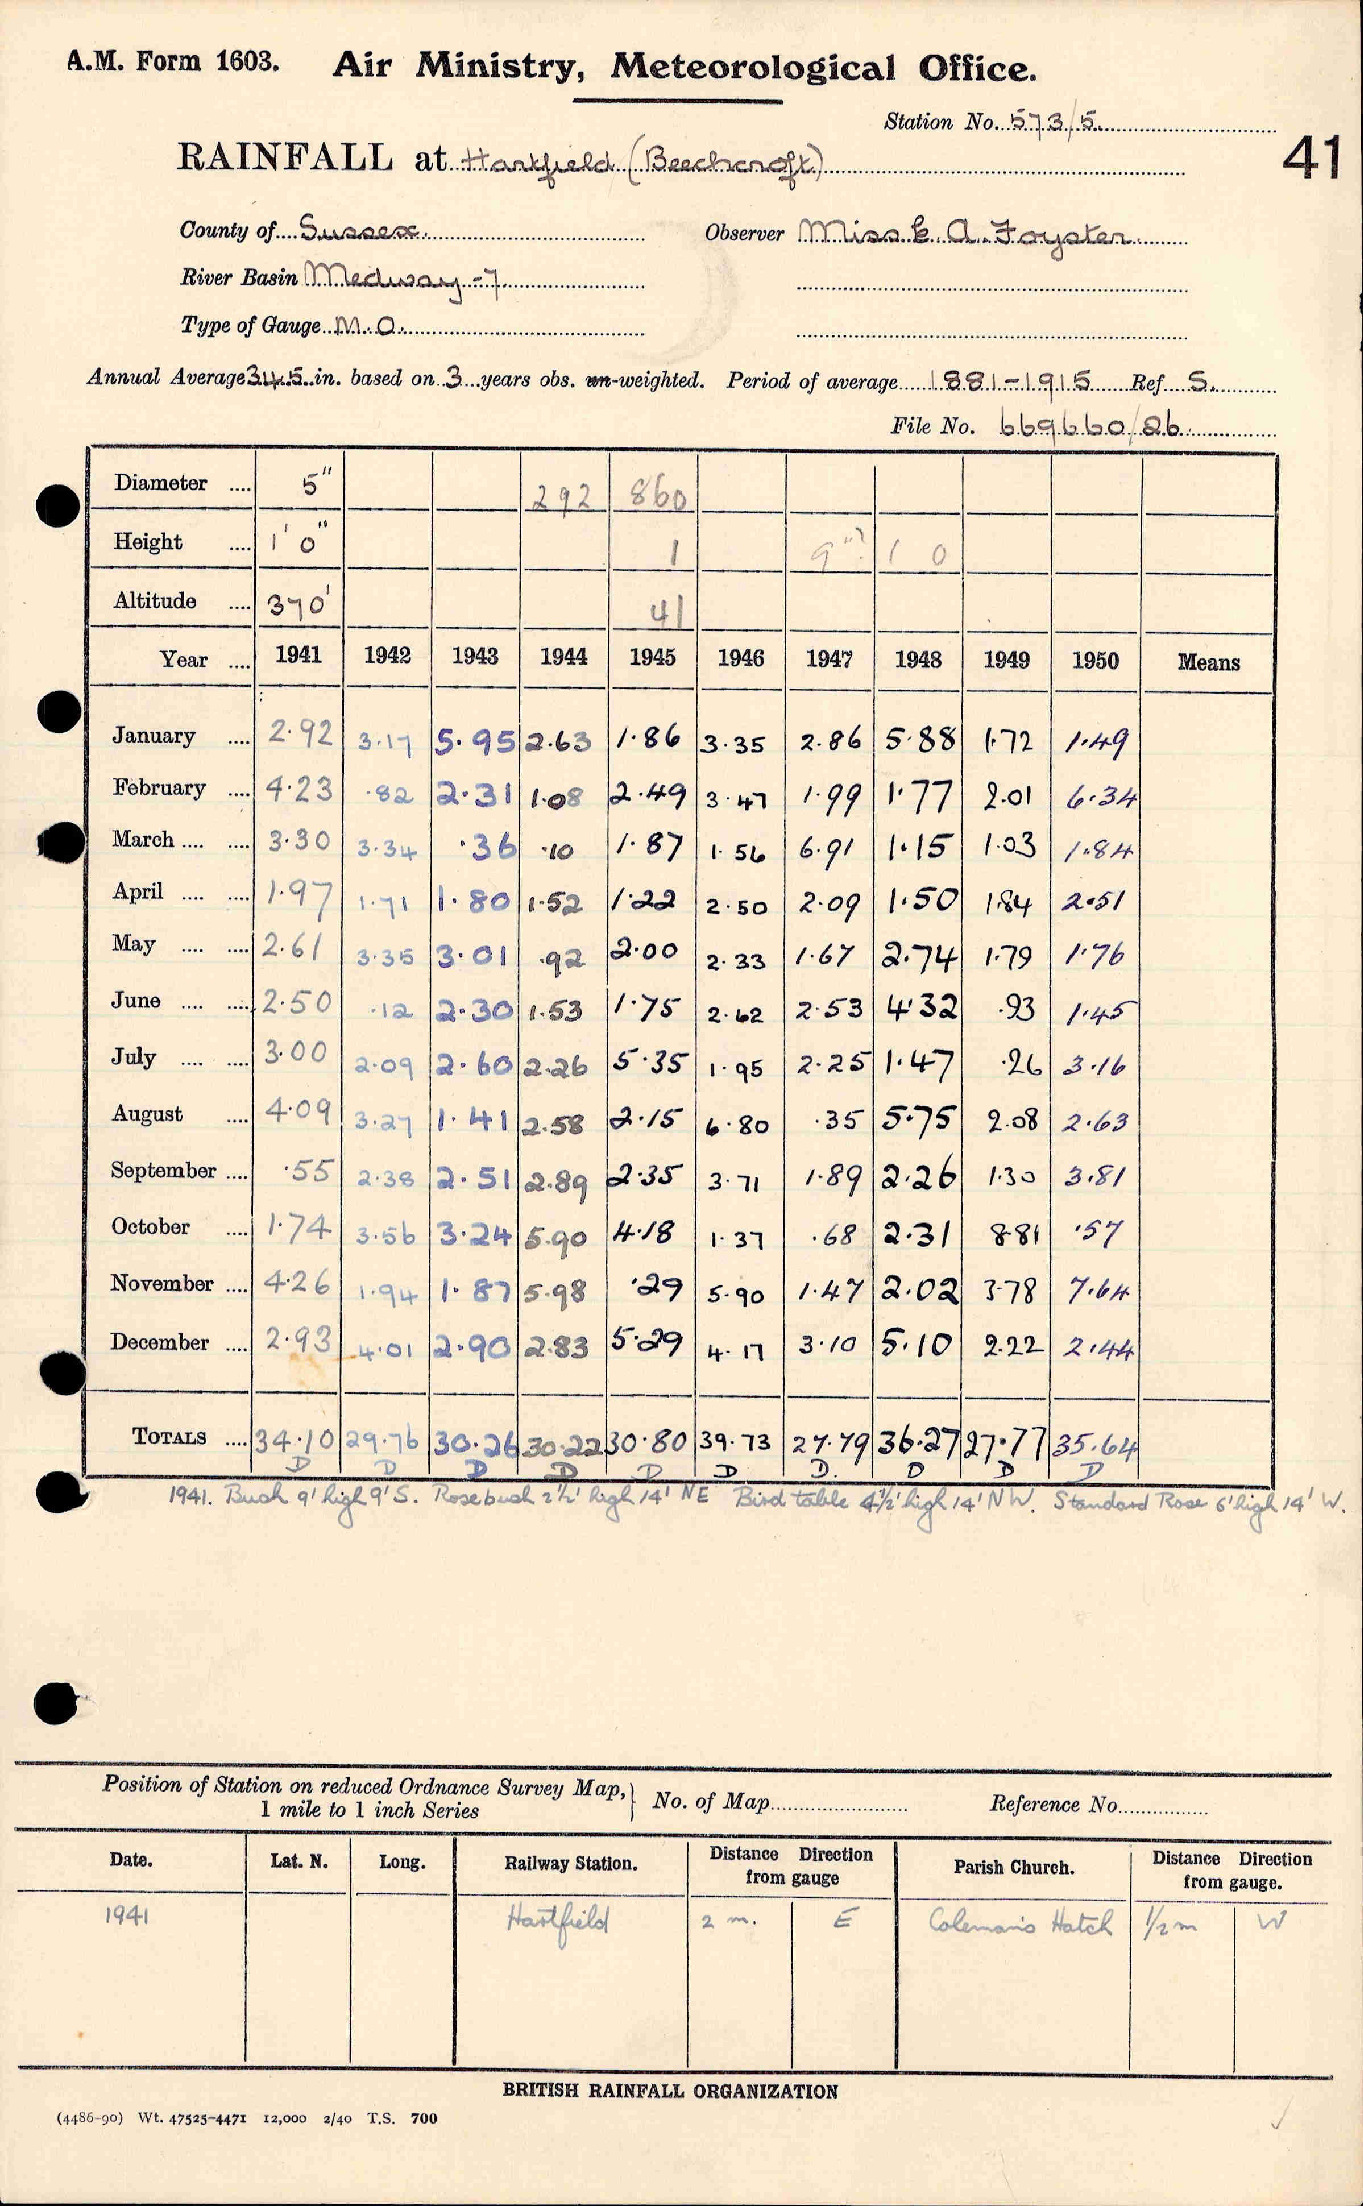 A.M. Form 1603. Air Ministry, Meteorological Office.
Station No. 573/5.
41
RAINFALL at Hartfield (Beechcroft)
County of Sussex. Observer Miss E. A. Foyster
River Basin Medway -7.
Type of Gauge M.O.
Annual Average 34.5 in. based on 3 years obs. un-weighted. Period of average 1881-1915 Ref S.
File No. 669660/26.
Diameter .... 5" 292 860
Height .... 1' 0" 1 9"? 1 0
Altitude .... 370' 41
Year .... 1941 1942 1943 1944 1945 1946 1947 1948 1949 1950 Means
January .... 2.92 3.17 5.95 2.63 1.86 3.35 2.86 5.88 1.72 1.49
February .... 4.23 .82 2.31 1.08 2.49 3.47 1.99 1.77 2.01 6.34
March .... .... 3.30 3.34 .36 .10 1.87 1.56 6.91 1.15 1.03 1.84
April .... .... 1.97 1.71 1.80 1.52 1.22 2.50 2.09 1.50 1.84 2.51
May .... .... 2.61 3.35 3.01 .92 2.00 2.33 1.67 2.74 1.79 1.76
June .... .... 2.50 .12 2.30 1.53 1.75 2.62 2.53 4.32 .93 1.45
July .... .... 3.00 2.09 2.60 2.26 5.35 1.95 2.25 1.47 .26 3.16
August .... 4.09 3.27 1.41 2.58 2.15 6.80 .35 5.75 2.08 2.63
September .... .55 2.38 2.51 2.89 2.35 3.71 1.89 2.26 1.30 3.81
October .... 1.74 3.56 3.24 5.90 4.18 1.37 .68 2.31 8.81 .57
November .... 4.26 1.94 1.87 5.98 .29 5.90 1.47 2.02 3.78 7.64
December .... 2.93 4.01 2.90 2.83 5.29 4.17 3.10 5.10 2.22 2.44
TOTALS .... 34.10 29.76 30.26 30.22 30.80 39.73 27.79 36.27 27.77 35.64
D D D D D D D. D D D
1941. Bush 9' high 9' S. Rosebush 2½' high 14' NE Bird table 4½' high 14' NW. Standard Rose 6' high 14' W.
Position of Station on reduced Ordnance Survey Map, No. of Map Reference No.
1 mile to 1 inch Series
Date. Lat. N. Long. Railway Station. Distance Direction from gauge Parish Church. Distance Direction from gauge.
1941 Hartfield 2 m. E Coleman's Hatch ½ m W
BRITISH RAINFALL ORGANIZATION
(4486-90) Wt. 47525-4471 12,000 2/40 T.S. 700